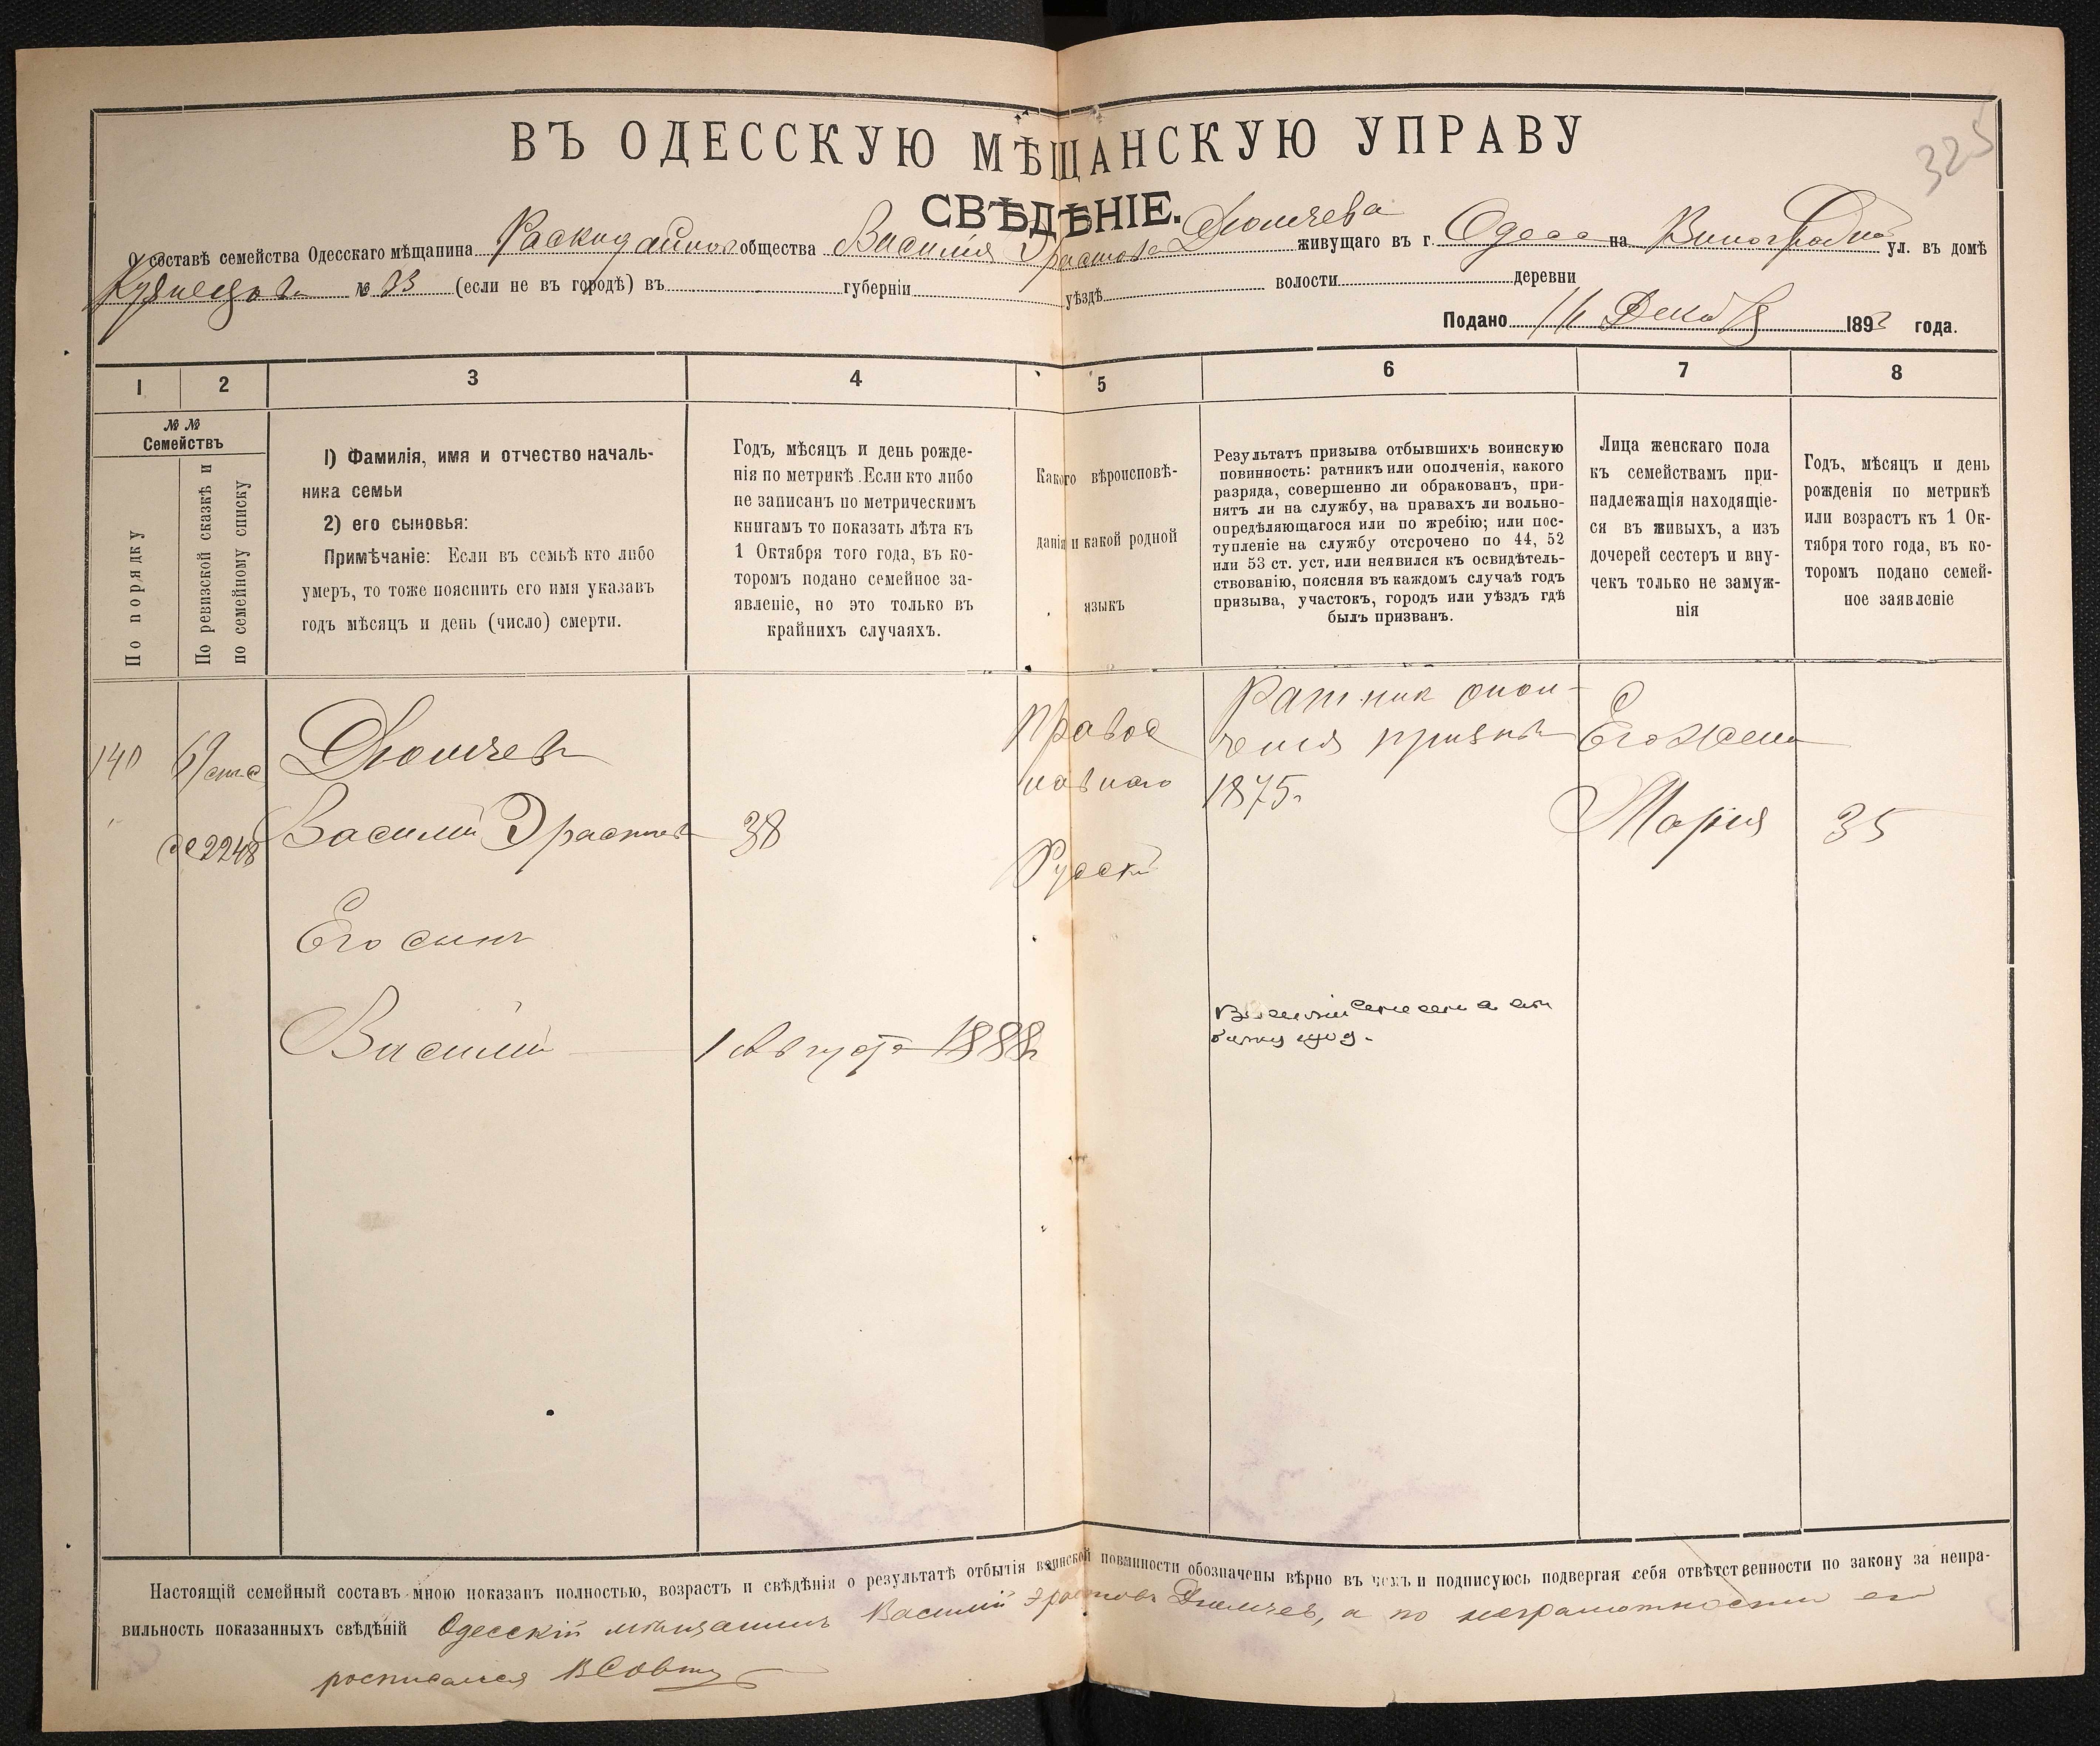 325
ВЪ ОДЕССКУЮ МѢЩАНСКУЮ УПРАВУ
СВѢДѢНІЕ.
О составѣ семейства Одесскаго мѣщанина общества Василія Эрастова живущаго въ г. Одесса на ул. въ домѣ
Кузнецова № 33 (если не въ городѣ) въ губерніи уѣздѣ волости деревни
Подано 189 года.
1 2 3 4 5 6 7 8
№ №
Семействъ
По порядку
По ревизской сказкѣ и
по семейному списку
1) Фамилія, имя и отчество началь-
ника семьи
2) его сыновья:
Примѣчаніе: Если въ семьѣ кто либо
умеръ, то тоже пояснить его имя указавъ
годъ мѣсяцъ и день (число) смерти.
Годъ, мѣсяцъ и день рожде-
нія по метрикѣ. Если кто либо
не записанъ по метрическимъ
книгамъ то показать лѣта къ
1 Октября того года, въ ко-
торомъ подано семейное за-
явленіе, но это только въ
крайнихъ случаяхъ.
Какого вѣроисповѣ-
данія и какой родной
языкъ
Результатъ призыва отбывшихъ воинскую
повинность: ратникъ или ополченія, какого
разряда, совершенно ли обракованъ, при-
нятъ ли на службу, на правахъ ли вольно-
опредѣляющагося или по жребію; или пос-
тупленіе на службу отсрочено по 44, 52
или 53 ст. уст. или неявился къ освидѣтель-
ствованію, поясняя въ каждомъ случаѣ годъ
призыва, участокъ, городъ или уѣздъ гдѣ
былъ призванъ.
Лица женскаго пола
къ семействамъ при-
надлежащія находящіе-
ся въ живыхъ, а изъ
дочерей сестеръ и вну-
чекъ только не замуж-
нія
Годъ, мѣсяцъ и день
рожденія по метрикѣ
или возрастъ къ 1 Ок-
тября того года, въ ко-
торомъ подано семей-
ное заявленіе
Правос
лавнаго
Ратник опол-
ченія призыва
1875г
Его жена
2248
Василій Эрастов 38
Русскій
Марія 35
Его сынъ
Василій 1 Августа 1888г
Настоящій семейный составъ мною показанъ полностью, возрастъ и свѣдѣнія о результатѣ отбытія воинской повинности обозначены вѣрно въ чемъ и подписуюсь подвергая себя отвѣтственности по закону за непра-
вильность показанныхъ свѣдѣній Одесскій мѣщанинъ Василій Эрастовъ а по неграмотности его
росписался